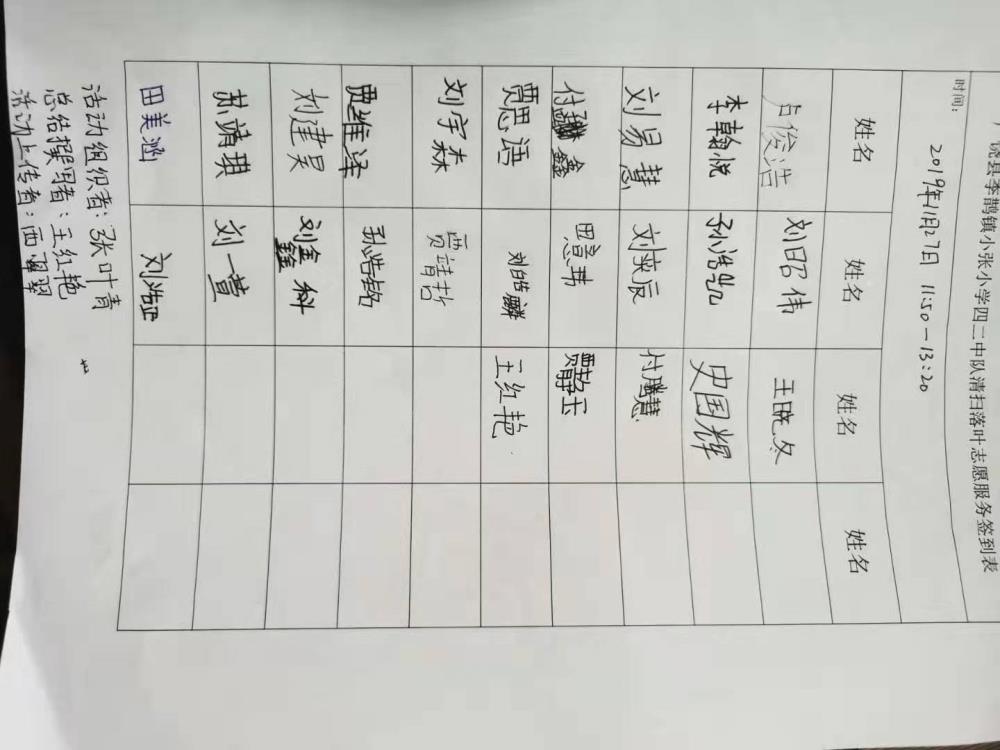 饶县李鹊镇小张小学四二中队清扫落叶志愿服务签到表
时间: 2019年11月27日 11:50-13:20
姓名 姓名 姓名 姓名
卢俊浩 刘昭伟 王晓冬
李翰悦 孙浩凯 史国辉
刘易慧 刘奕辰 付腾慧
付鑫 田意韩 贾静玉
贾思语 刘皓麟 王红艳
刘宇森 贾靖哲
贾维泽 孙浩铭
刘建昊 刘鑫科
苏靖琪 刘一萱
田美涵 刘浩亚
活动组织者:张叶青
总结撰写者:王红艳
活动上传者:西翠翠